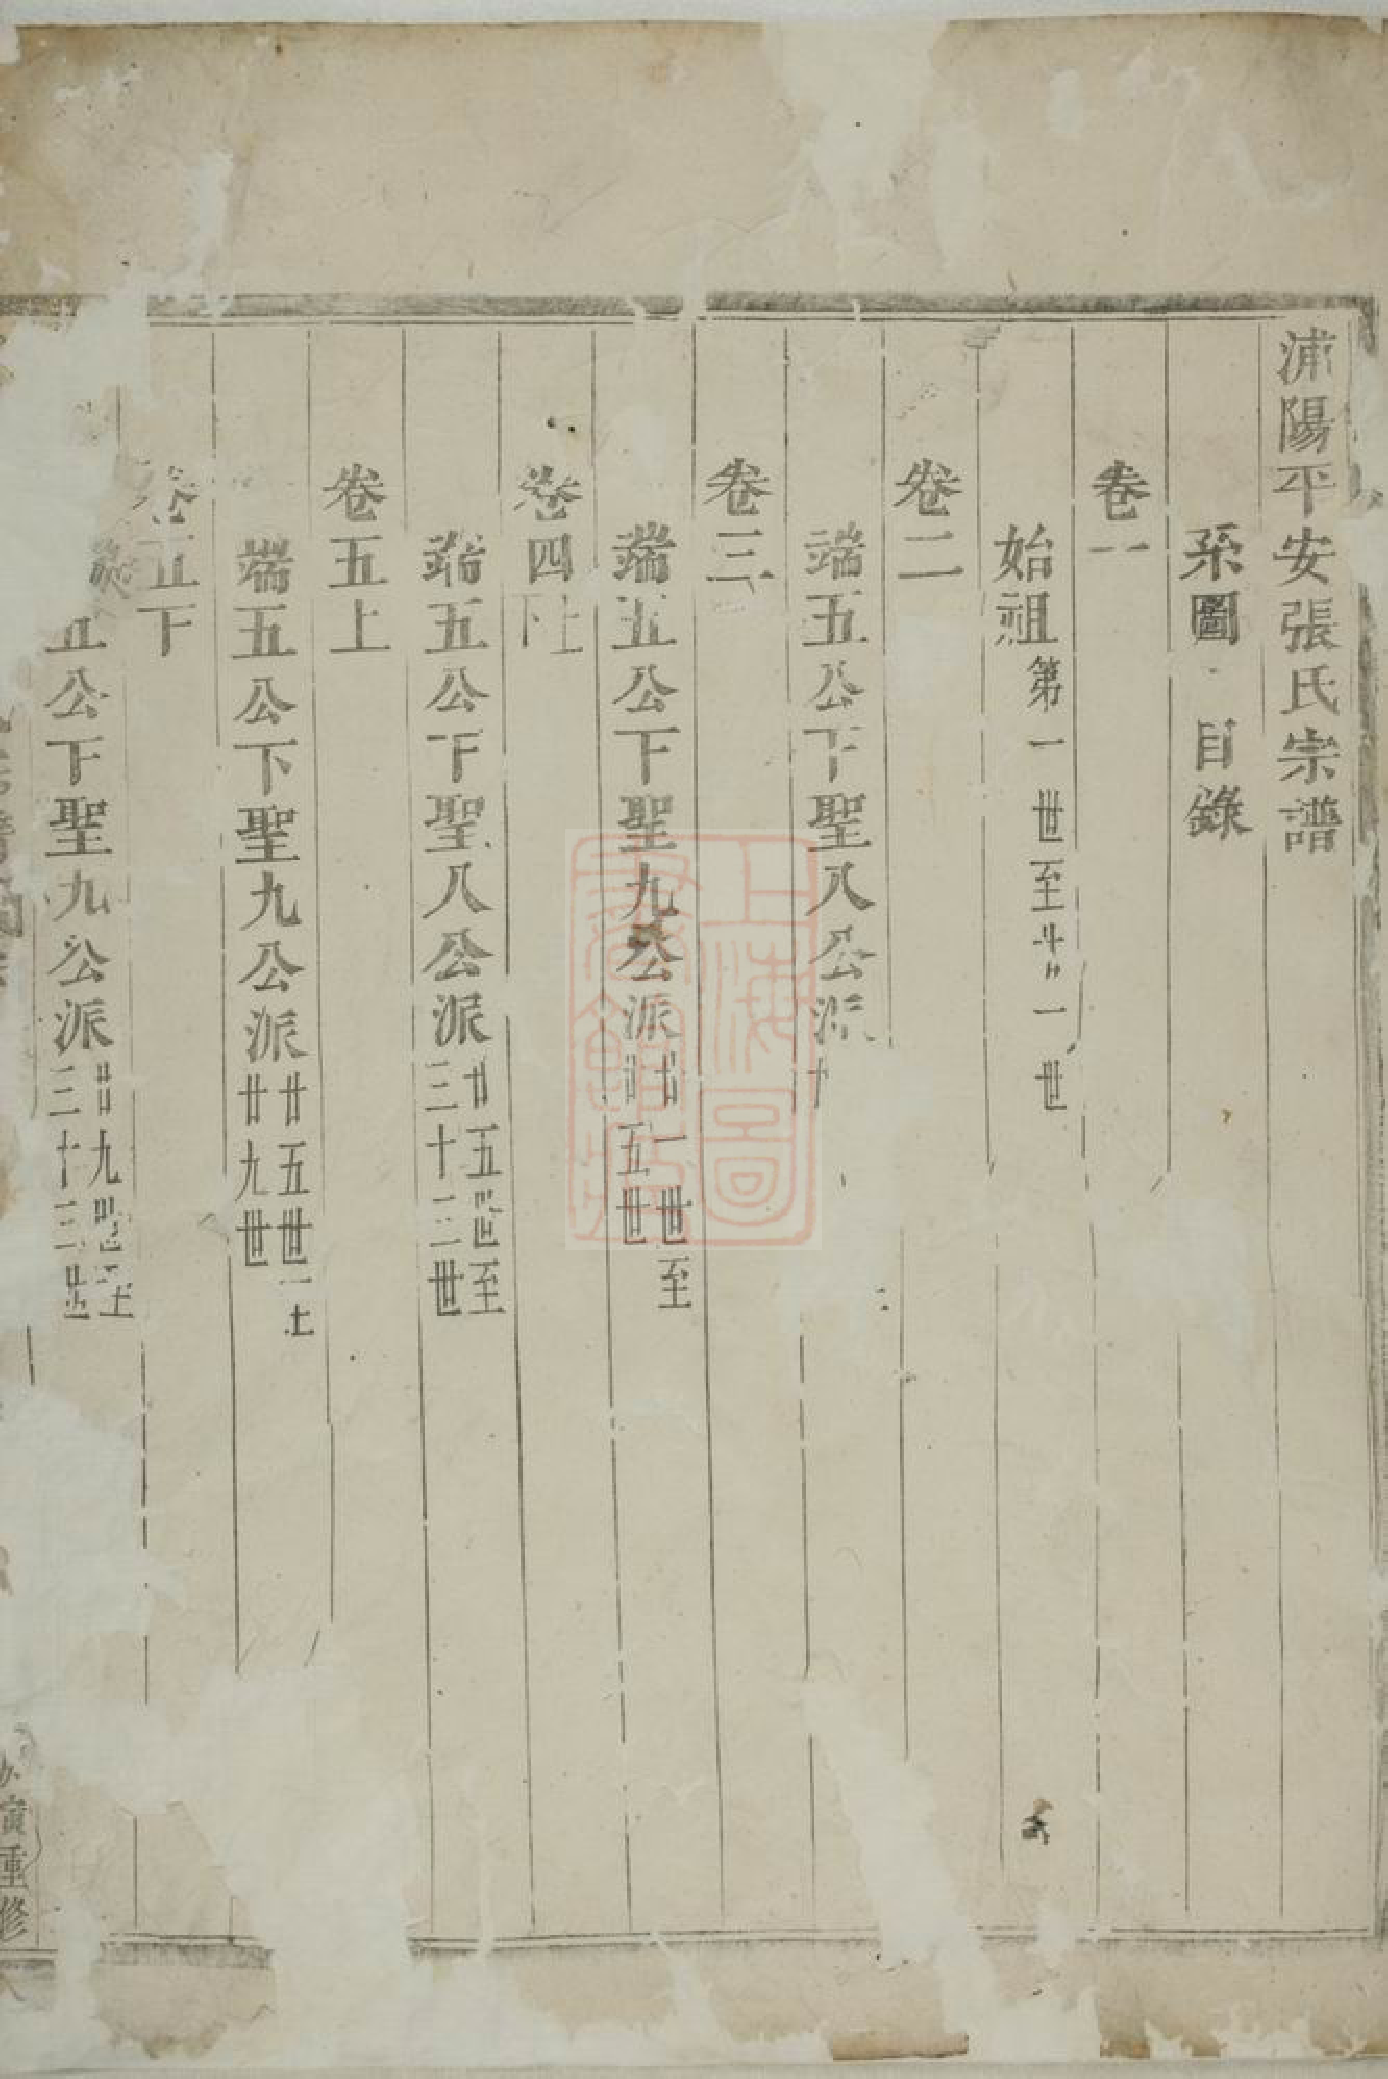 浦陽平安張氏宗譜
系圖目錄
卷一
始祖第一世至廿一世
卷二
端五公下聖八公派
卷三
端五公下聖九公派廿一世至廿五世
卷四上下
端五公下聖八公派廿五世至三十三世
卷五上
端五公下聖九公派廿五世至廿九世
卷五下
端五公下聖九公派廿九世至三十三世
寅重修
上海圖書館藏